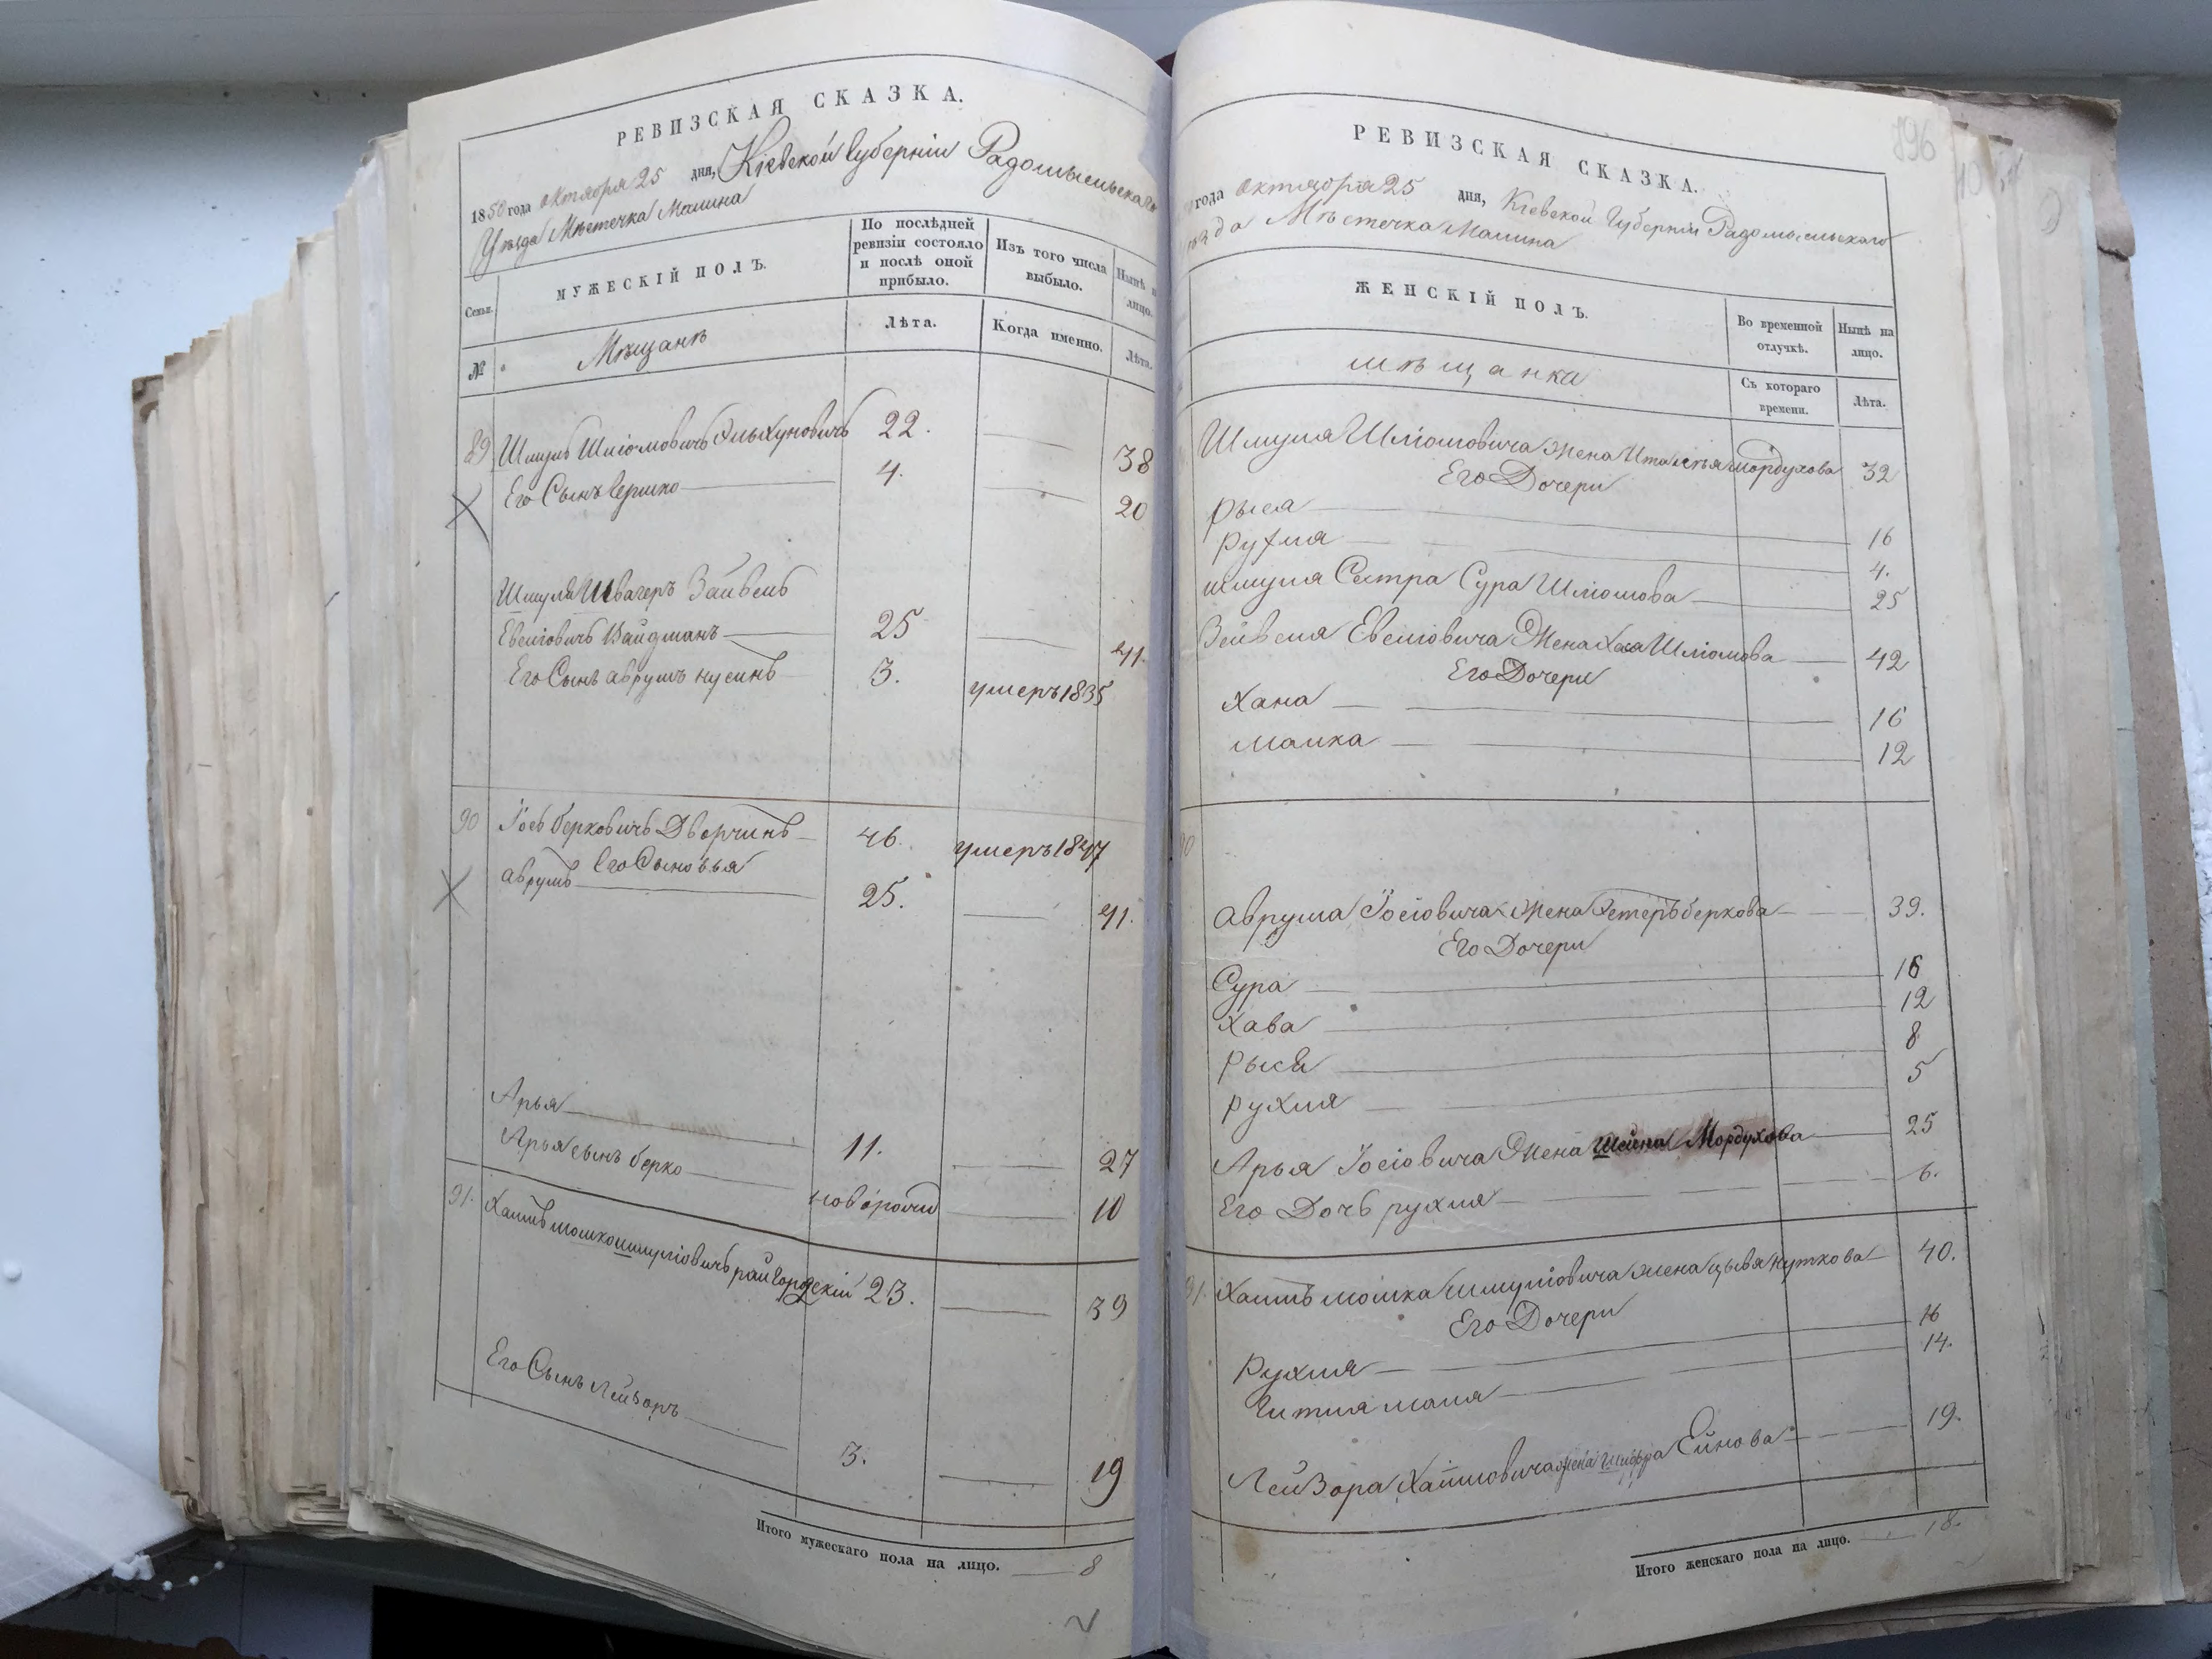 РЕВИЗСКАЯ СКАЗКА.
1850 года октября 25 дня, Кіевской Губерніи Радомысльскаго
Уѣзда Мѣстечка Малина
Семьи.
МУЖЕСКІЙ ПОЛЪ.
По послѣдней ревизіи состояло и послѣ оной прибыло.
Изъ того числа выбыло.
Нынѣ на лицо.
№
Мѣщанѣ
Лѣта.
Когда именно.
Лѣта.
89 Шмуль Шліомовичъ 22. 38
Его Сынъ Гершко 4. 20
Шмуля Швагеръ Зайвель
Евеліовичъ Вайдманъ 25 41.
Его Сынъ аврумъ нусинъ 3. умеръ 1835
90 Іось берковичъ Дворчинъ 46. умеръ 1847
Его Сыновья
аврумъ 25. 41.
Арья 11. 27
Арья сынъ берко новорожд 10
91. Хаимъ мошко шмуліовичъ райгородскій 23. 39
Его Сынъ Лейзоръ 3. 19
Итого мужескаго пола на лицо. 8
РЕВИЗСКАЯ СКАЗКА.
года октября 25 дня, Кіевской Губерніи Радомысльскаго
ѣзда Мѣстечка Малина
ЖЕНСКІЙ ПОЛЪ.
Во временной отлучкѣ.
Нынѣ на лицо.
мѣщанка
Съ котораго времени.
Лѣта.
Шмуля Шліомовича жена мордухова 32
Его Дочери
Рыся 16
Рухля 4.
шмуля Сестра Сура Шліомова 25
Зейвеля Евеліовича Жена Хая Шліомова 42
Его Дочери
Хана 16
Малка 12
90
аврума Іосіовича Жена Естеръ беркова 39.
Его Дочери
Сура 16
Хава 12
Рыся 8
рухля 5
Арья Іосіовича Жена Шейна Мордухова 25
Его Дочь рухля 6.
91. Хаимъ мошка шмуліовича жена цывя нуткова 40.
Его Дочери
Рухля 16
Гитля маля 14.
Лейзора Хаимовича жена Шифра Ейнова 19.
Итого женскаго пола на лицо. 18.
896